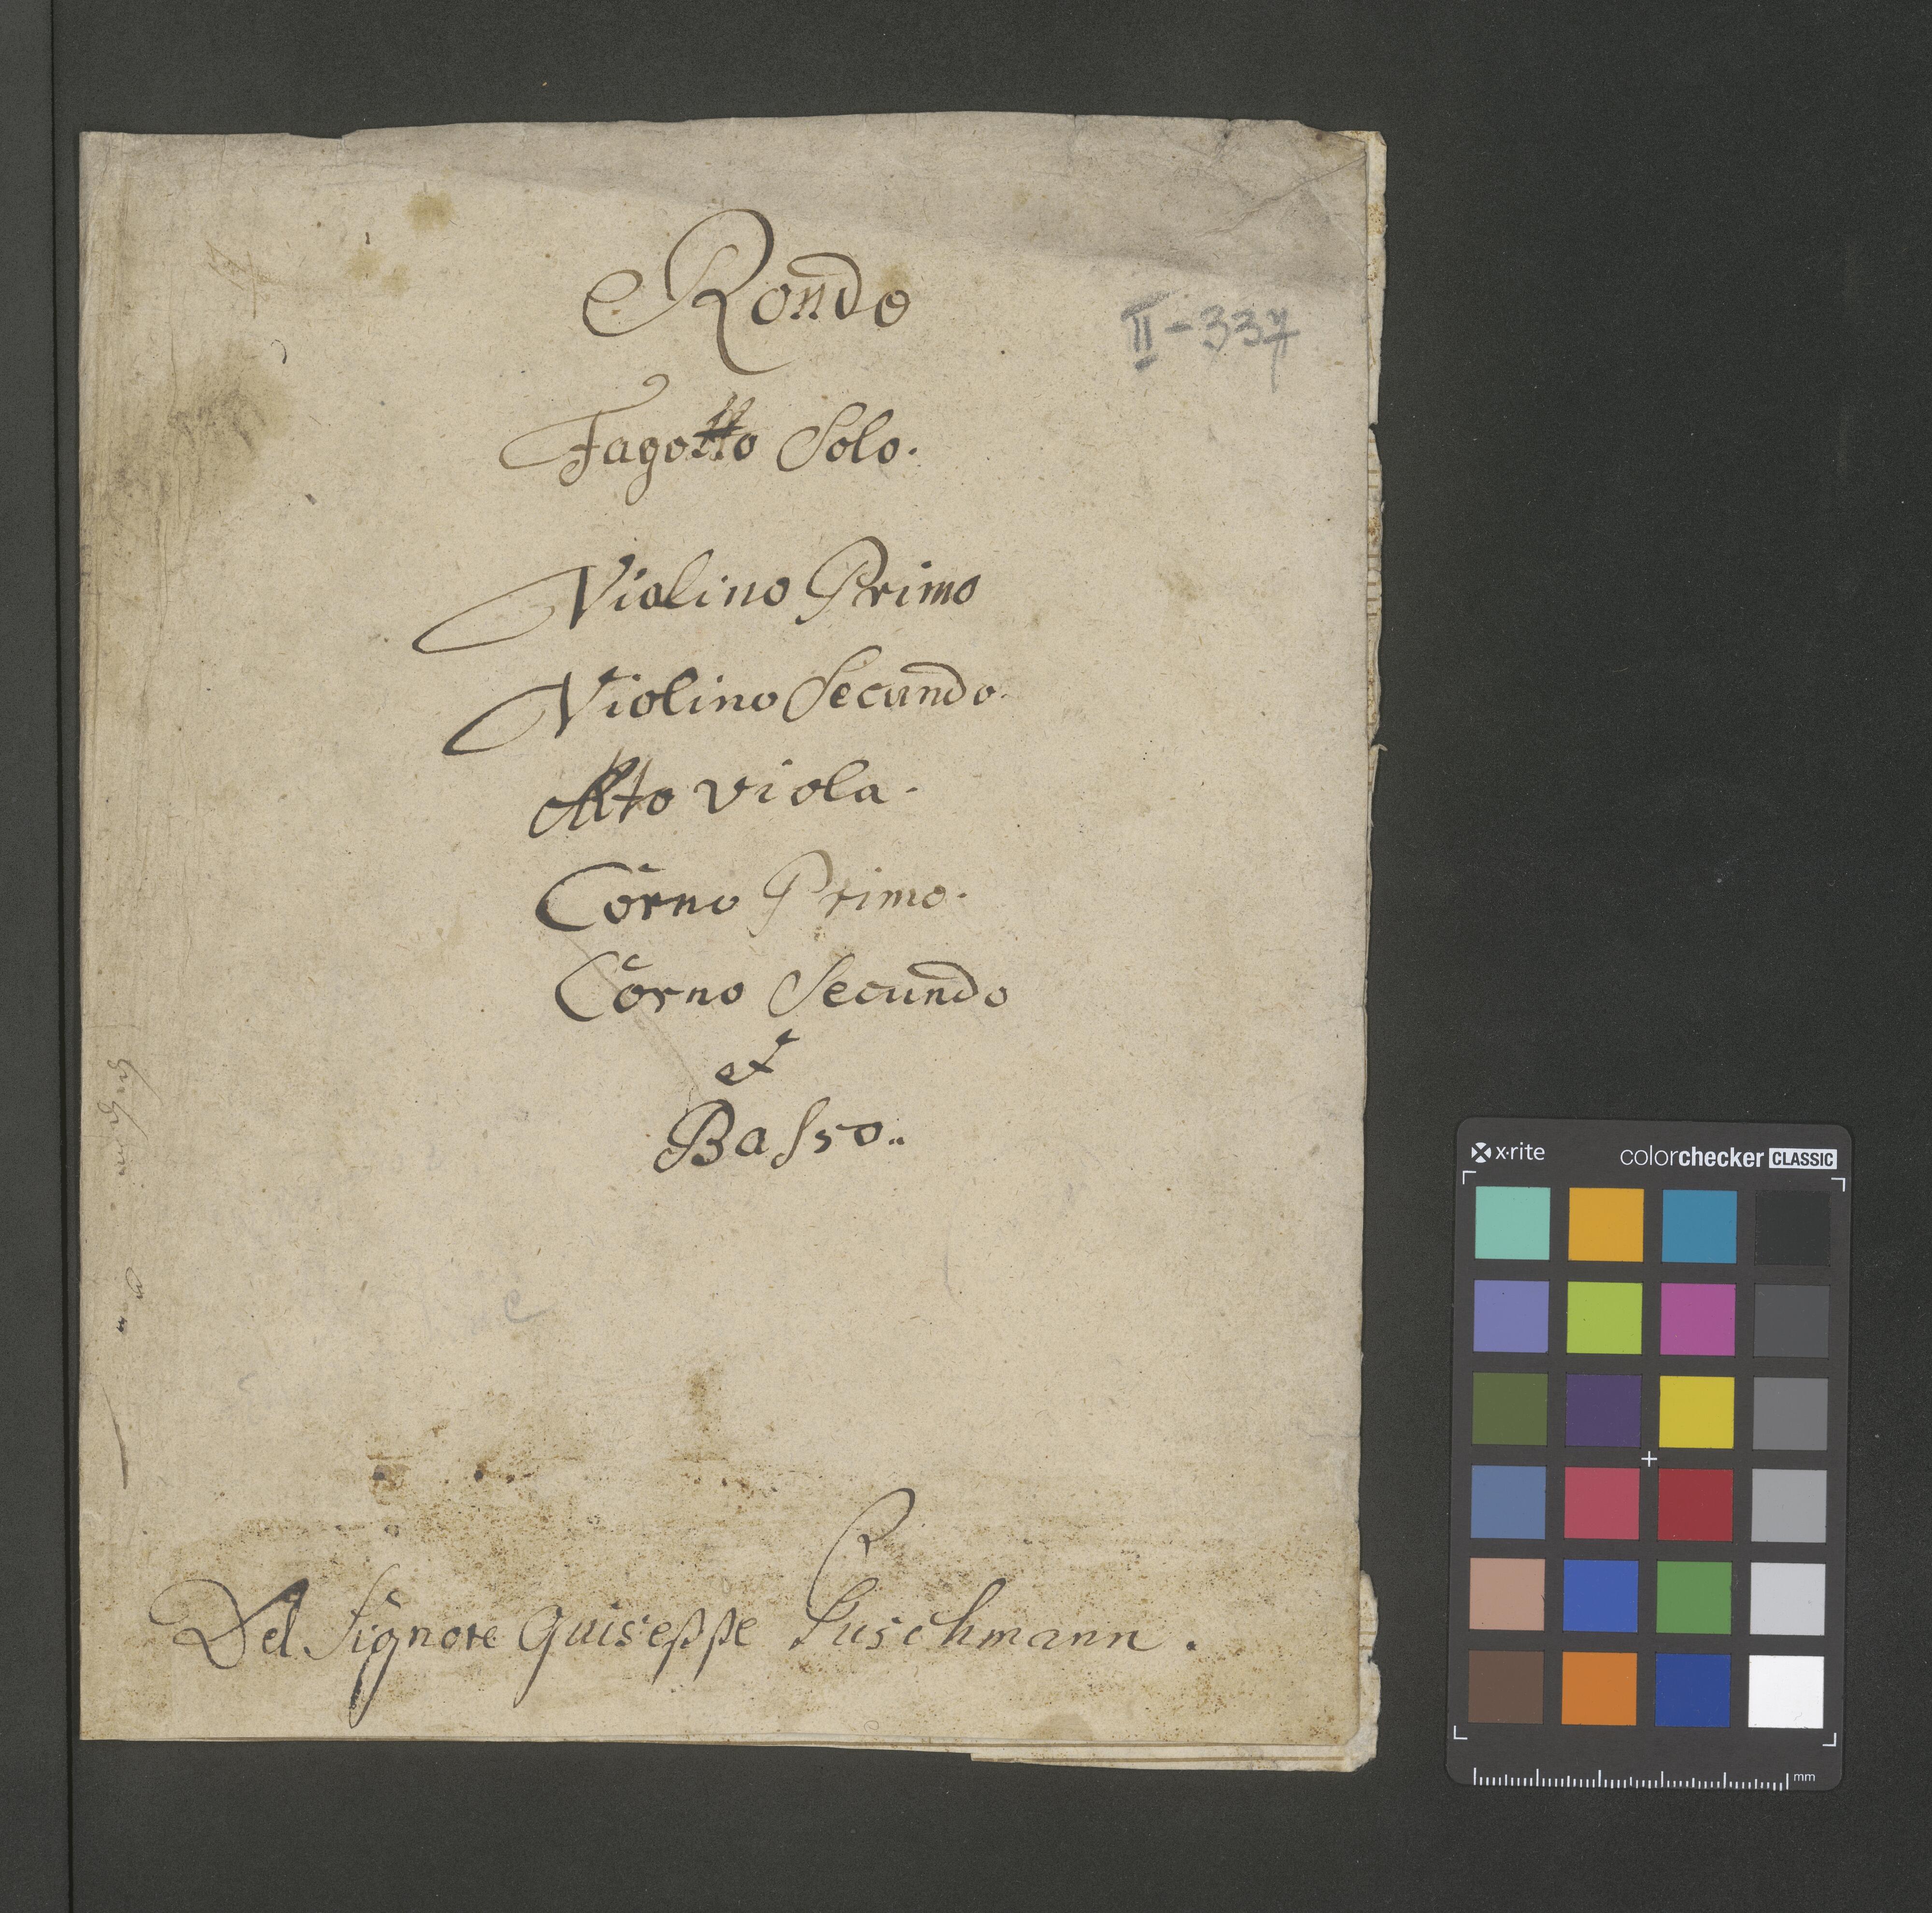 Rondo
II-337
Fagotto Solo.
Violino Primo
Violino Secundo.
Alto viola.
Corno Primo.
Corno Secundo
et
Basso..
Del Signore Guiseppe Puschmann.
x·rite colorchecker CLASSIC
mm